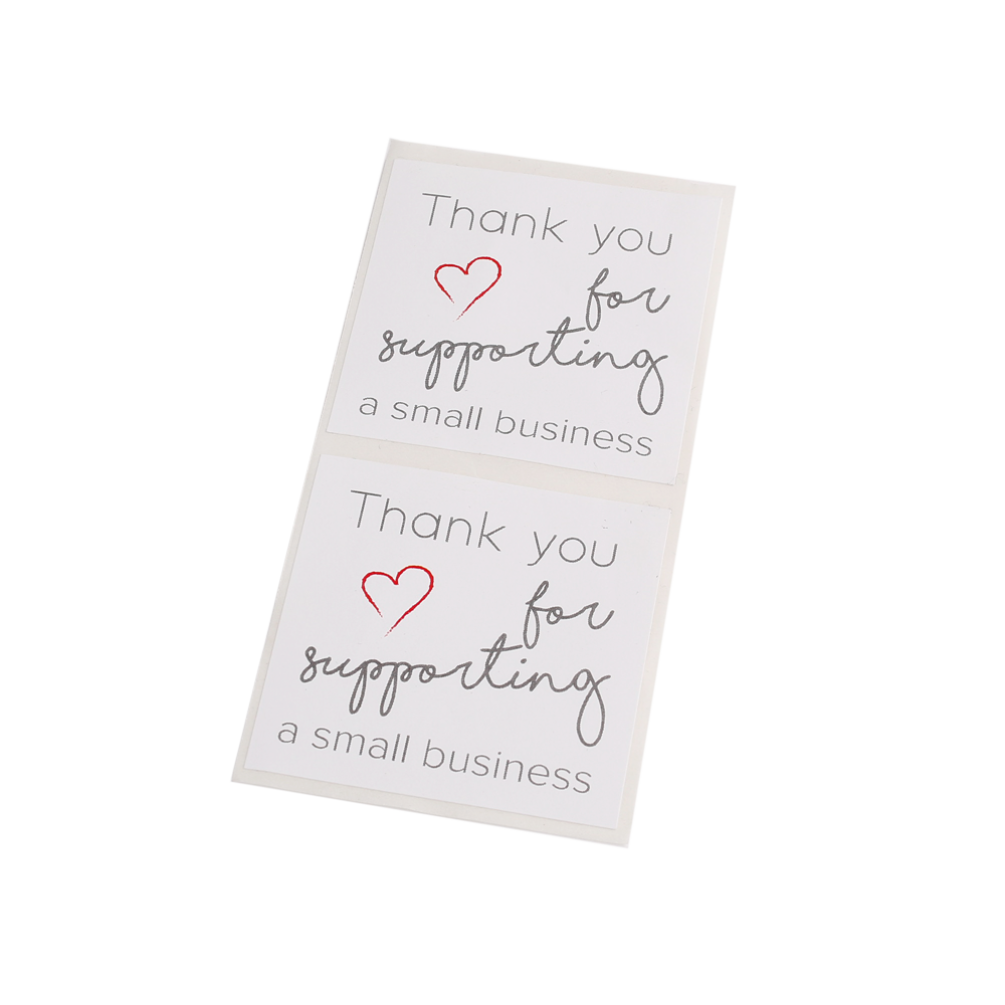 Thank you
for
supporting
a small business
Thank you
for
supporting
a small business